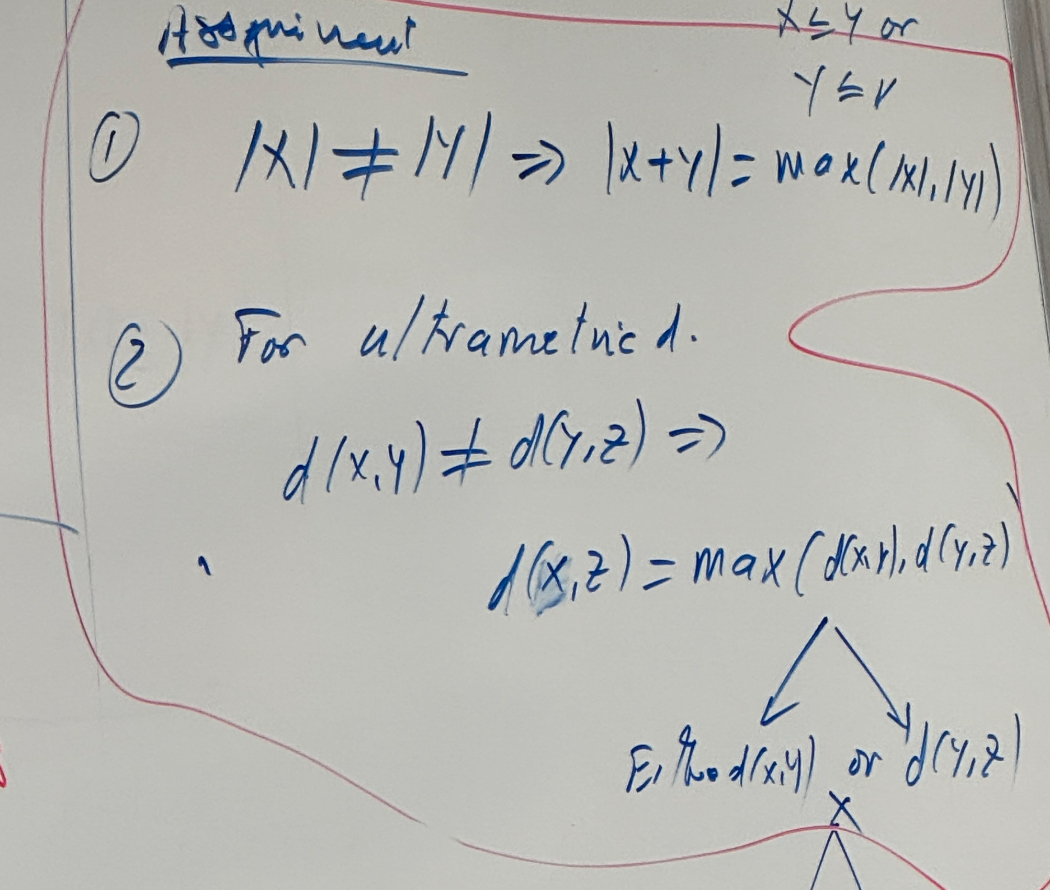 Assignment
X ≤ Y or
Y ≤ X
① |X| ≠ |Y| ⇒ |X+Y| = max(|X|, |Y|)
② For ultrametric d.
d(x,y) ≠ d(y,z) ⇒
d(x,z) = max(d(x,y), d(y,z)
Either d(x,y) or d(y,z)
X